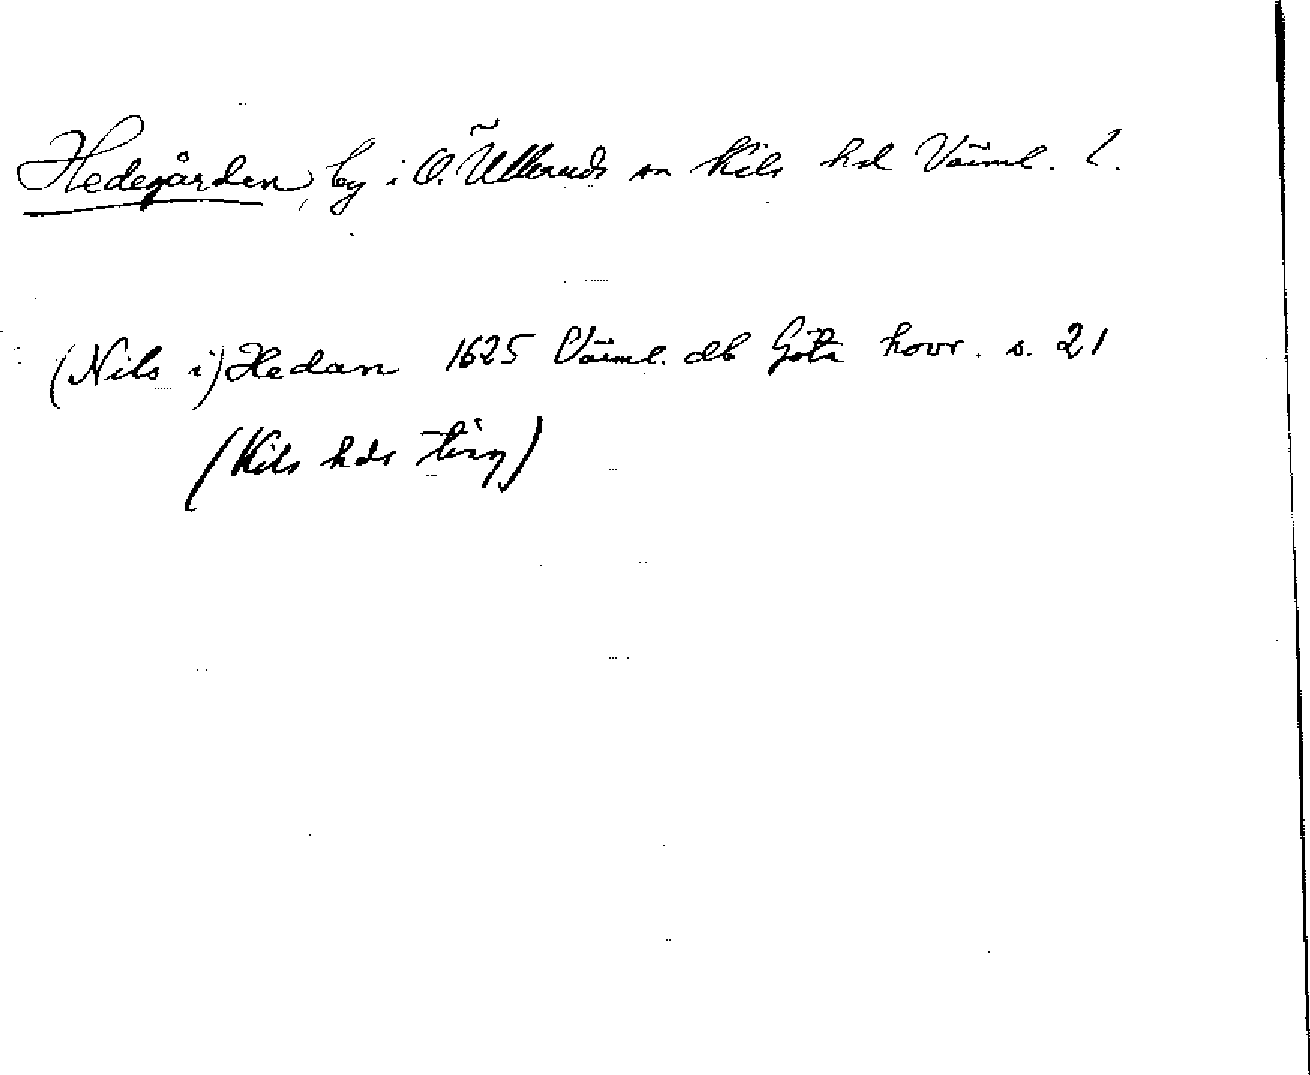 Hedegården, by i Ö. Ullerud sn Kils hd Värml. l.
(Nils i) Hedan 1625 Värml. db Göta hovr. s. 21
(Kils hds ting)